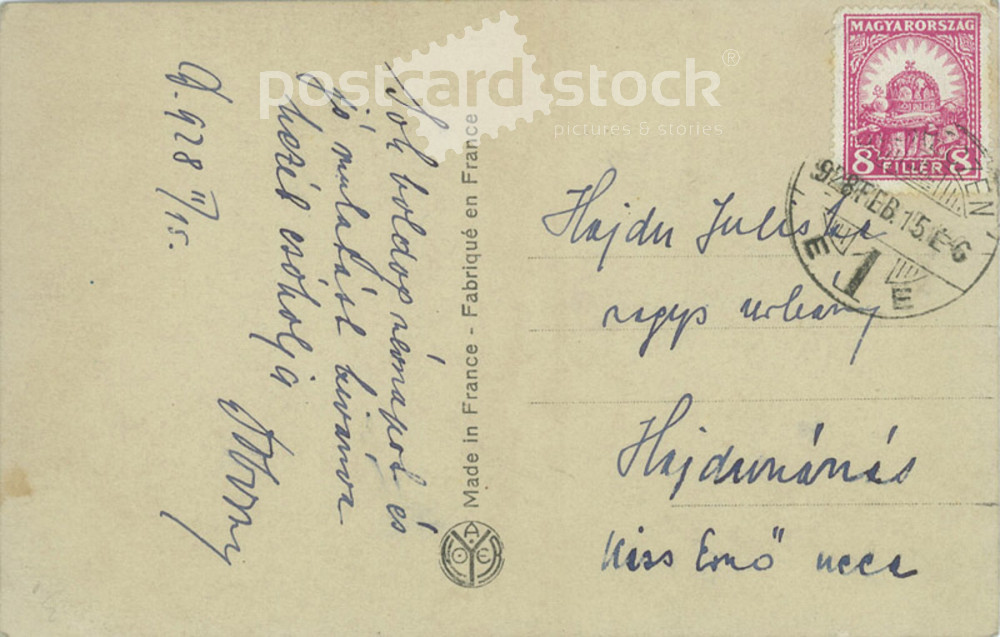 postcard stock®
pictures & stories
MAGYARORSZÁG
8 FILLÉR 8
928.FEB.15.E-6
E 1 E
D. 928 II/15.
Sok boldog névnapot és
jó mulatást kivánva
kezéd csókolja
Made in France - Fabriqué en France
Hajdu Juliska
nagys urleány
Hajdunánás
Kiss Ernő ucca